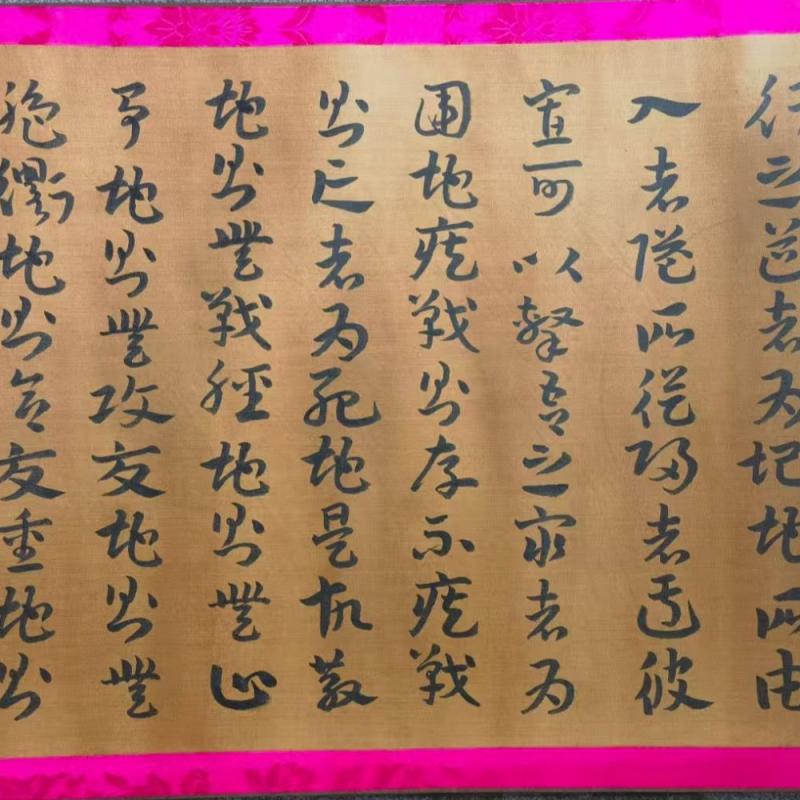 行之道者为圮地所由
入者隘所從歸者迂彼
寡可以擊吾之衆者为
圍地疾戰則存不疾戰
則亡者为死地是故散
地則無戰輕地則無止
爭地則無攻交地則無
絶衢地則合交重地則